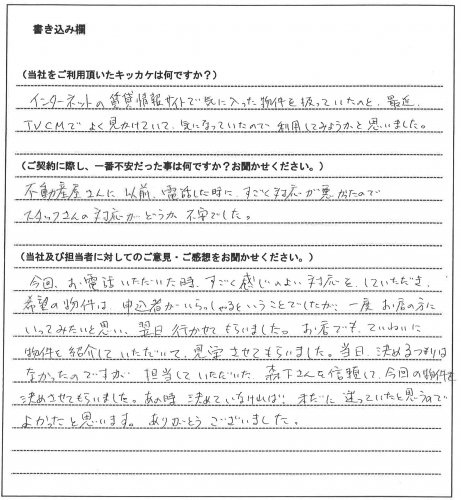 書き込み欄
(当社をご利用頂いたキッカケは何ですか?)
インターネットの賃貸情報サイトで気に入った物件を扱っていたのと、最近
TVCMでよく見かけていて、気になっていたので利用してみようかと思いました。
(ご契約に際し、一番不安だった事は何ですか?お聞かせください。)
不動産屋さんに以前、電話した時に、すごく対応が悪かったので
スタッフさんの対応がどうか不安でした。
(当社及び担当者に対してのご意見・ご感想をお聞かせください。)
今回、お電話いただいた時、すごく感じのよい対応を、していただき、
希望の物件は、申込者がいらっしゃるということでしたが、一度お店の方に
いってみたいと思い、翌日行かせてもらいました。お店でも、ていねいに
物件を紹介していただいて、見学させてもらいました。当日、決めるつもりは
なかったのですが、担当していただいた、森下さんを信頼して、今回の物件を
決めさせてもらいました。あの時、決めていなければ、まだに迷っていたと思うので
よかったと思います。ありがとうございました。